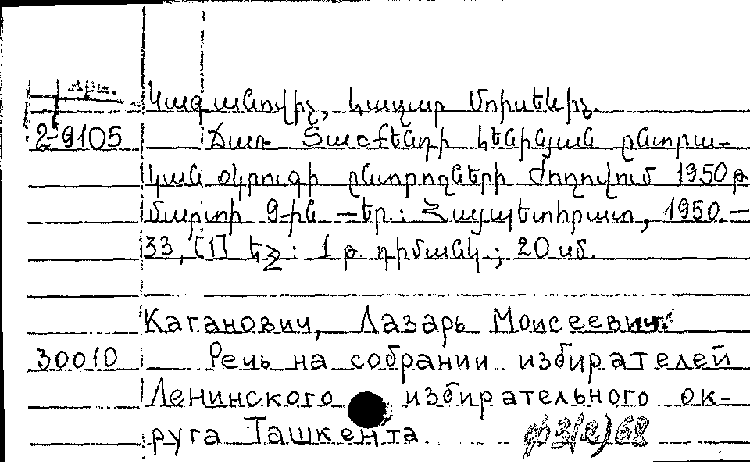 Կագանովիչ, Լազար Մոիսեևիչ.
2-9105 Ճառ Տաշքենդի Լենինյան ընտրա-
կան օկրուգի ընտրողների ժողովում 1950թ
մարտի 9-ին — Եր.: Հայպետհրատ, 1950.—
33, [1] էջ: 1 թ. դիմանկ.; 20 սմ.
Каганович, Лазарь Моисеевич.
30010 Речь на собрании избирателей
Ленинского избирательного ок-
руга Ташкента